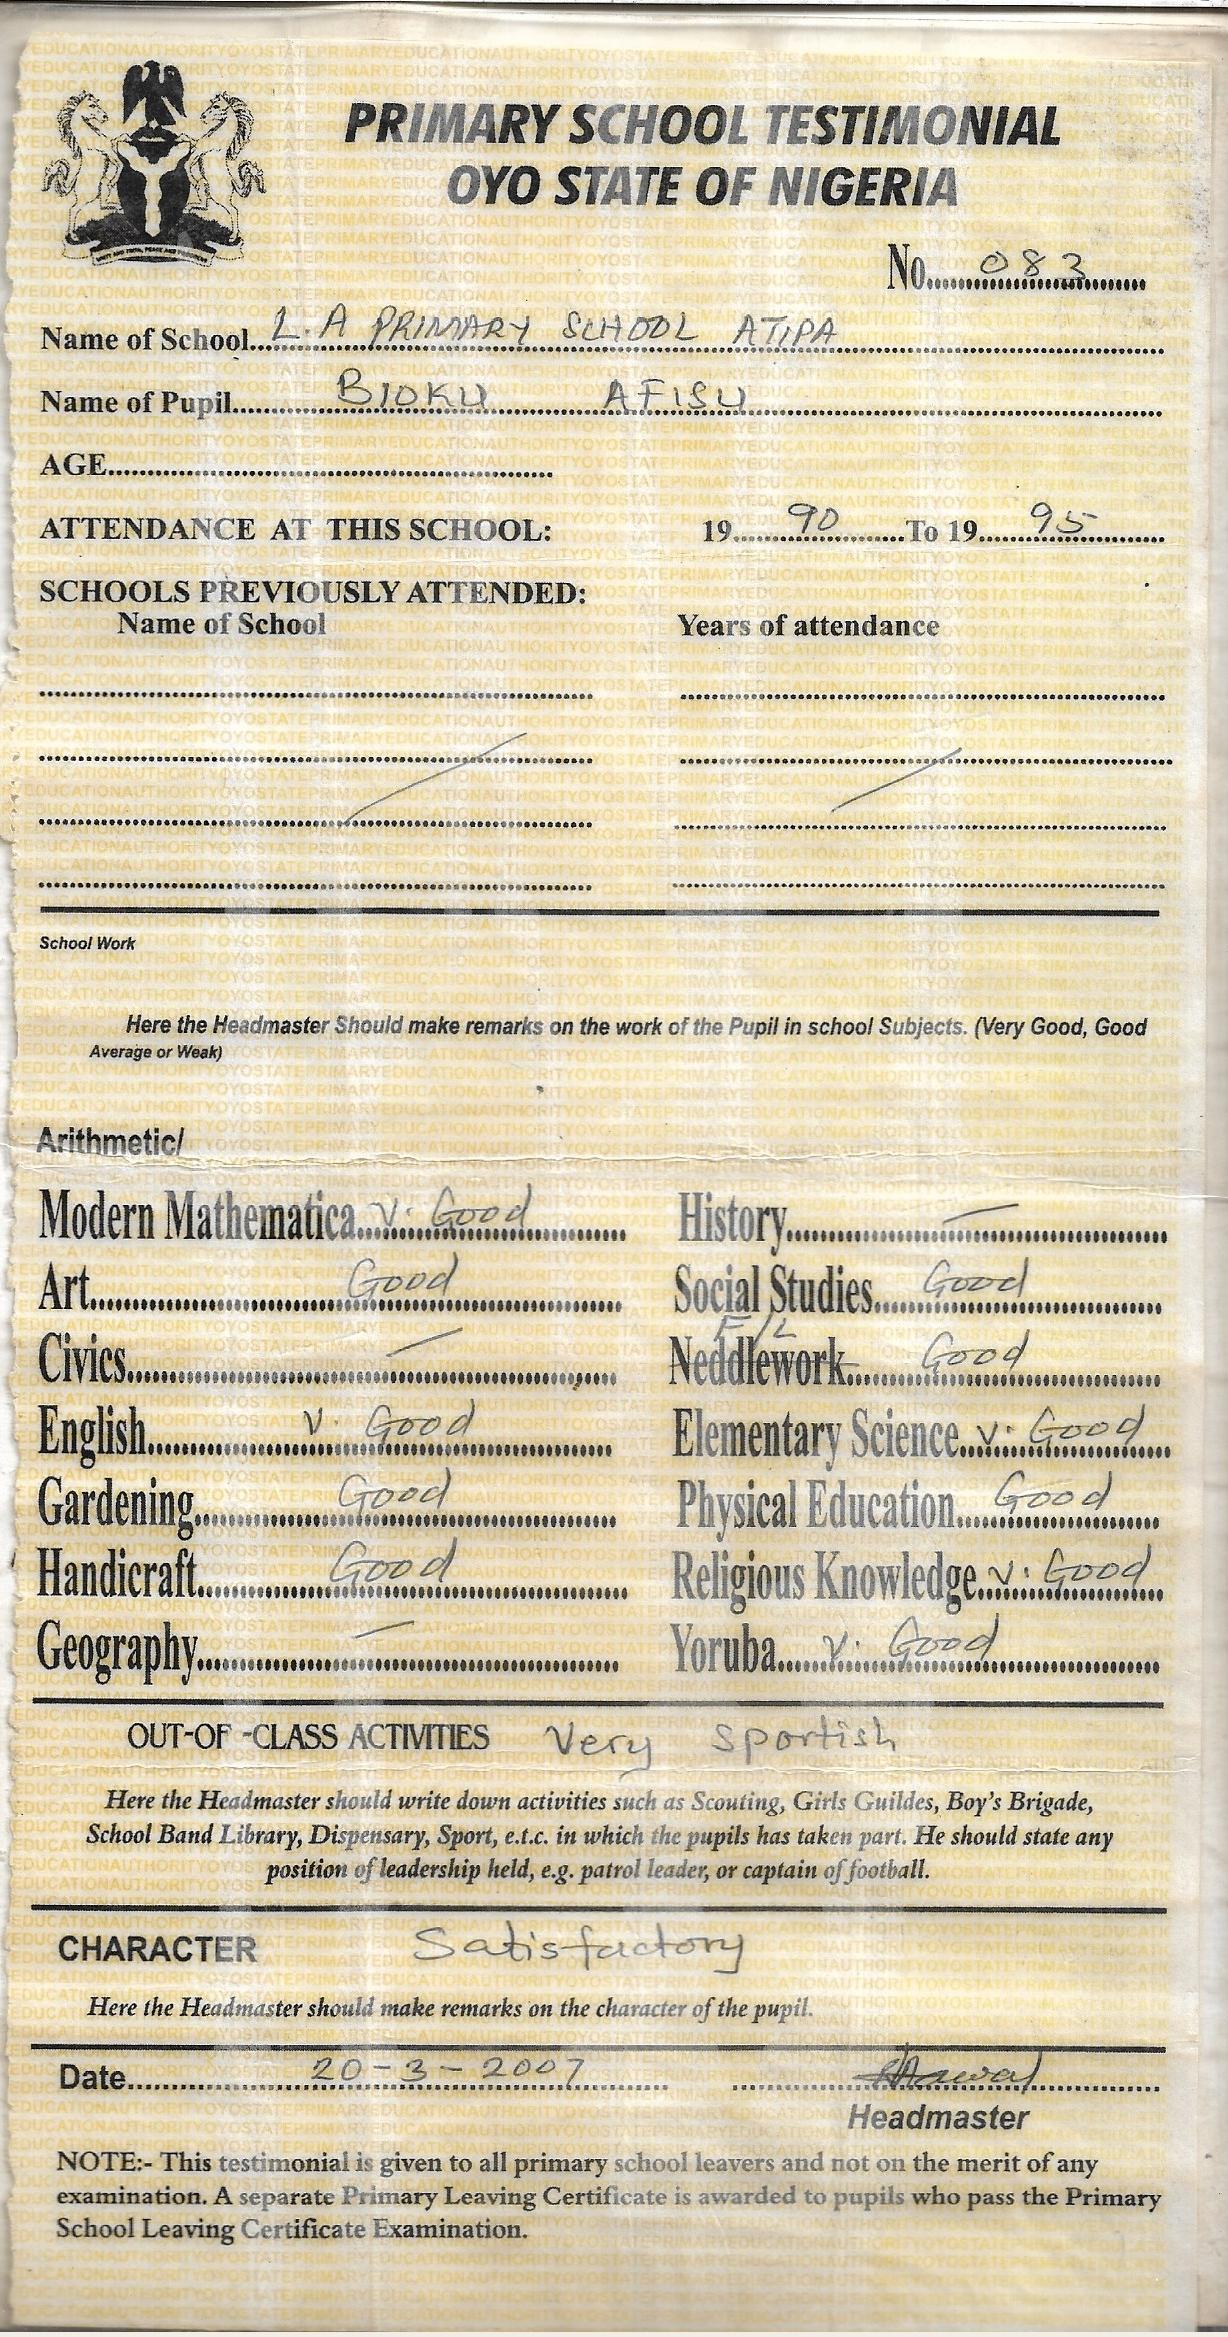 PRIMARY SCHOOL TESTIMONIAL
OYO STATE OF NIGERIA
No. 083
Name of School L.A PRIMARY SCHOOL ATIPA
Name of Pupil BIOKU AFISU
AGE
ATTENDANCE AT THIS SCHOOL: 19 90 To 19 95
SCHOOLS PREVIOUSLY ATTENDED:
Name of School Years of attendance
School Work
Here the Headmaster Should make remarks on the work of the Pupil in school Subjects. (Very Good, Good
Average or Weak)
Arithmetic/
Modern Mathematica V. Good History —
Art Good Social Studies Good
F/L
Civics — Neddlework Good
English V. Good Elementary Science V. Good
Gardening Good Physical Education Good
Handicraft Good Religious Knowledge V. Good
Geography — Yoruba V. Good
OUT-OF -CLASS ACTIVITIES Very Sportish
Here the Headmaster should write down activities such as Scouting, Girls Guildes, Boy's Brigade,
School Band Library, Dispensary, Sport, e.t.c. in which the pupils has taken part. He should state any
position of leadership held, e.g. patrol leader, or captain of football.
CHARACTER Satisfactory
Here the Headmaster should make remarks on the character of the pupil.
Date 20-3-2007
Headmaster
NOTE:- This testimonial is given to all primary school leavers and not on the merit of any
examination. A separate Primary Leaving Certificate is awarded to pupils who pass the Primary
School Leaving Certificate Examination.